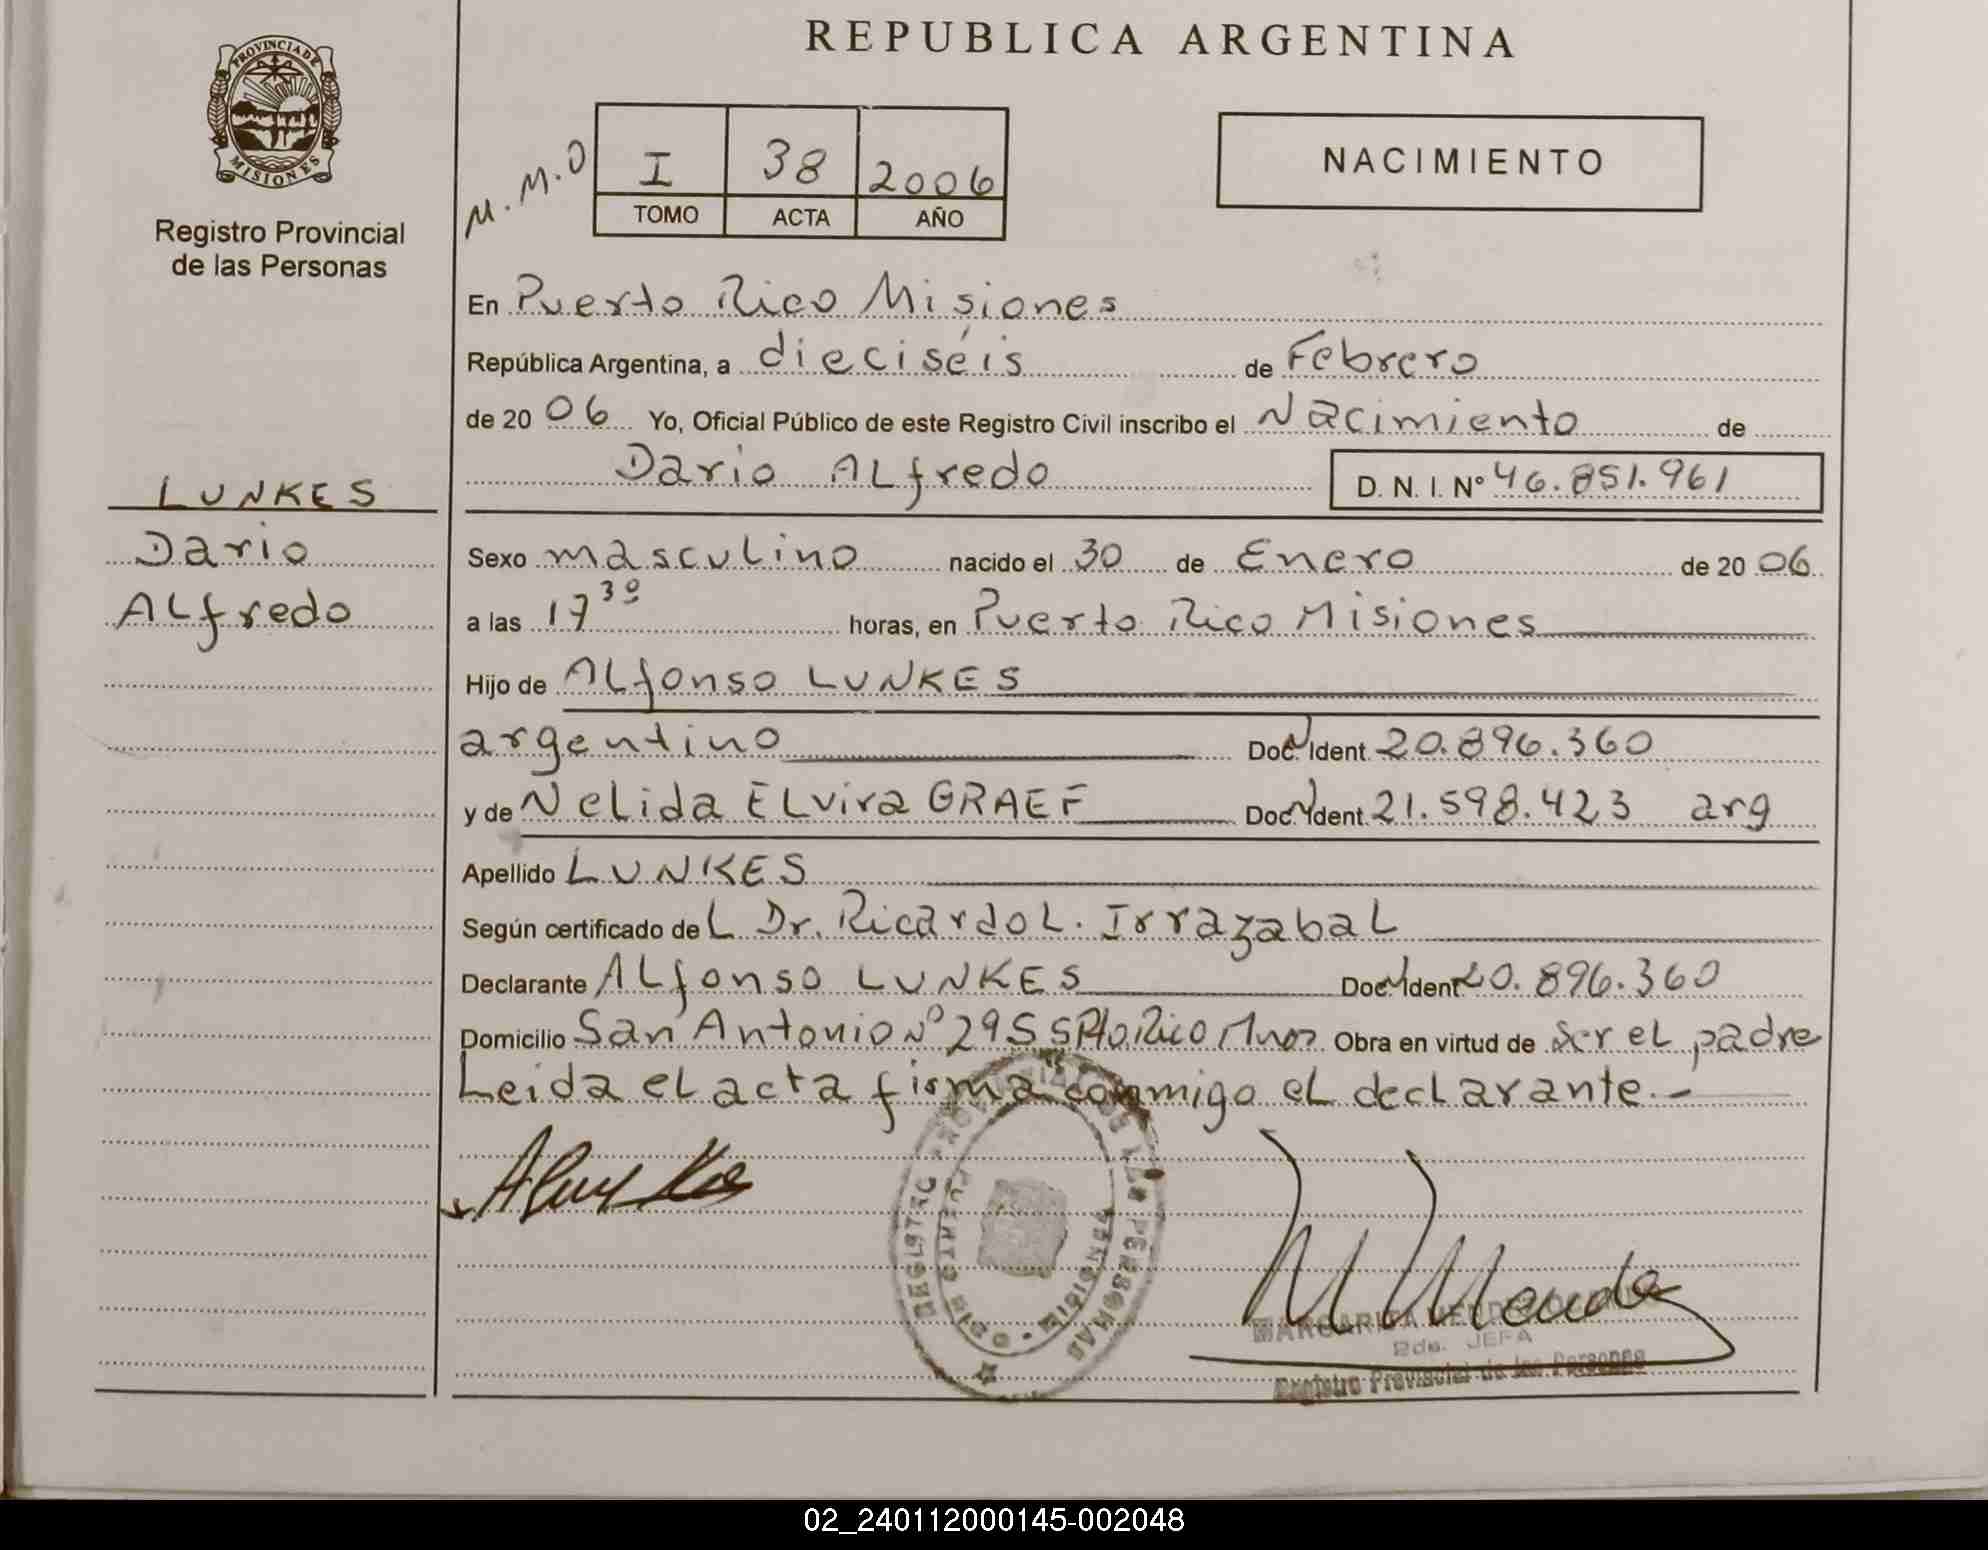 REPUBLICA ARGENTINA
PROVINCIA DE MISIONES
Registro Provincial
de las Personas
M.M.O
I 38 2006
TOMO ACTA AÑO
NACIMIENTO
En Puerto Rico Misiones
República Argentina, a dieciséis de Febrero
de 20 06 Yo, Oficial Público de este Registro Civil inscribo el Nacimiento de
Dario ALfredo D. N. I. N° 46.851.961
LUNKES
Dario
ALfredo
Sexo masculino nacido el 30 de Enero de 20 06
a las 17 30 horas, en Puerto Rico Misiones
Hijo de ALfonso LUNKES
argentino Doc. Ident. 20.896.360
y de Nelida ELvira GRAEF Doc. Ident. 21.598.423 arg
Apellido LUNKES
Según certificado de L Dr. Ricardo L. IrrazabaL
Declarante ALfonso LUNKES Doc. Ident 20.896.360
Domicilio San Antonio N° 295 Pto. Rico Mnes Obra en virtud de ser eL padre
Leida eL acta firma conmigo eL decLarante.-
REGISTRO PROVINCIAL DE LAS PERSONAS
PUERTO RICO MISIONES
M Mende
MARGARITA MENDEZ
2da. JEFA
Registro Provincial de las Personas
02_240112000145-002048